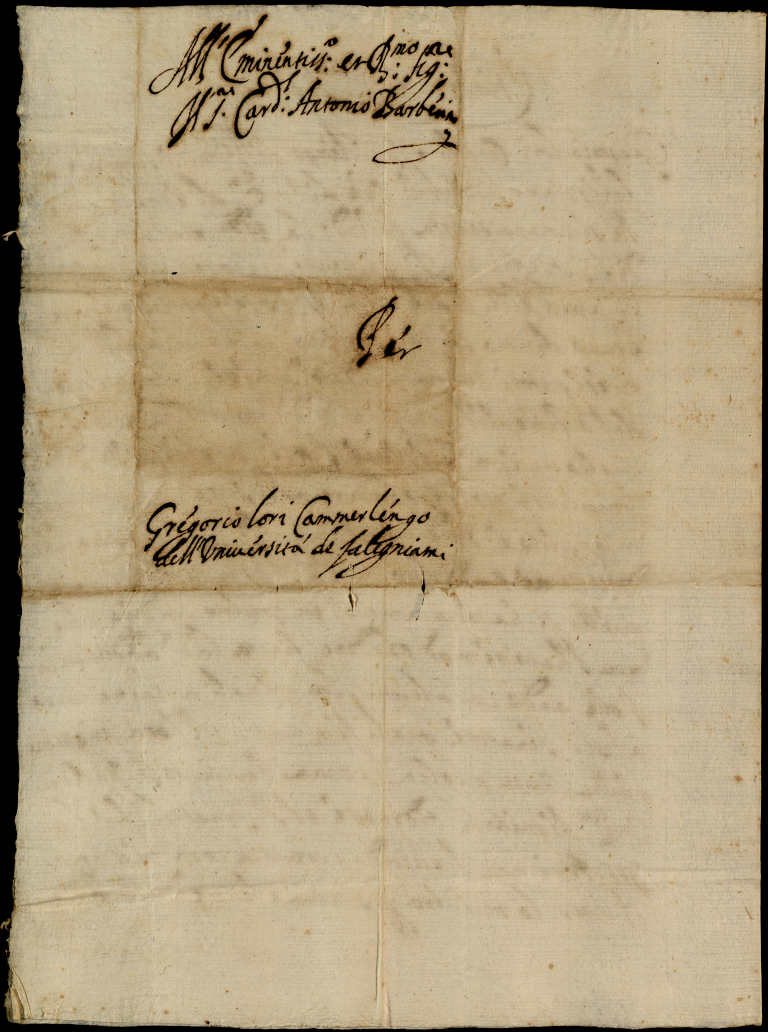 All' Eminentiss:o et R:mo Sig:re
Il Sr. Card:l Antonio Barberin
Per
Gregorio lori Cammerlengo
dell' Università de falegniami